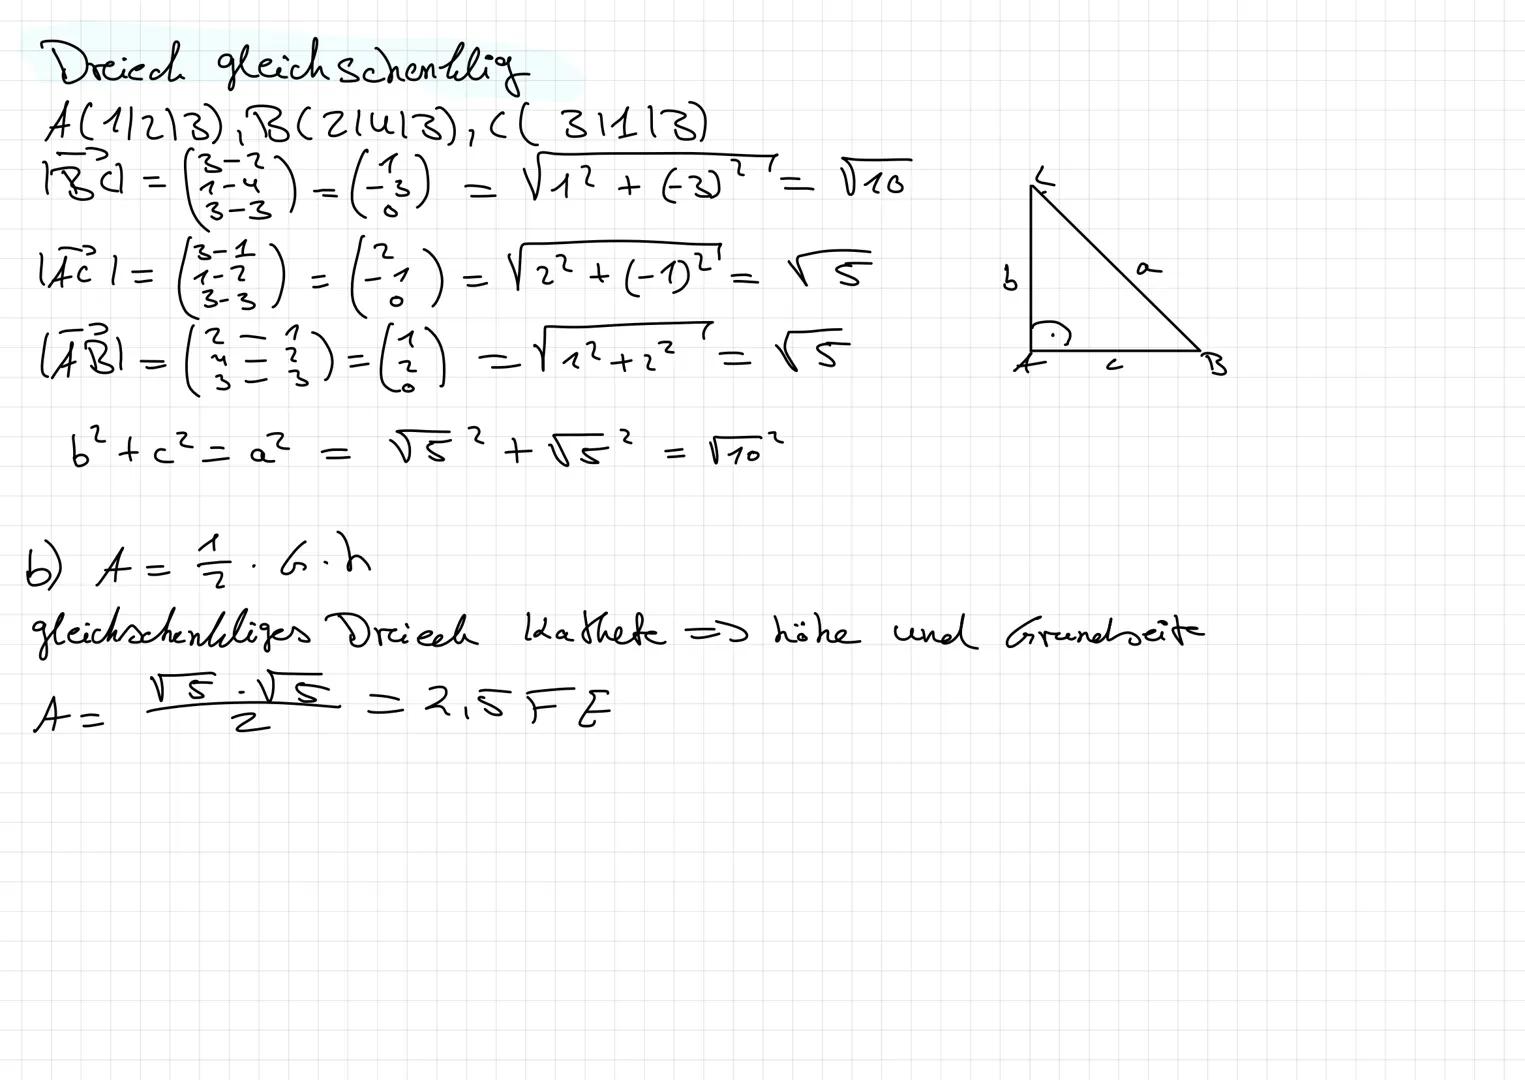 Dreieck gleichschenklig
A(1|2|3), B(2|4|3), C( 3|1|3)
|BC| = (3-2 1-4 3-3) = (1 -3 0) = √1² + (-3)² = √10
|AC| = (3-1 1-2 3-3) = (2 -1 0) = √2² + (-1)² = √5
|AB| = (2-1 4-2 3-3) = (1 2 0) = √1² + 2² = √5
b² + c² = a² = √5² + √5² = √10²
C
a
b
A c B
b) A = 1/2 · G · h
gleichschenkliges Dreieck Kathete => höhe und Grundseite
A = √5 · √5 / 2 = 2,5 FE